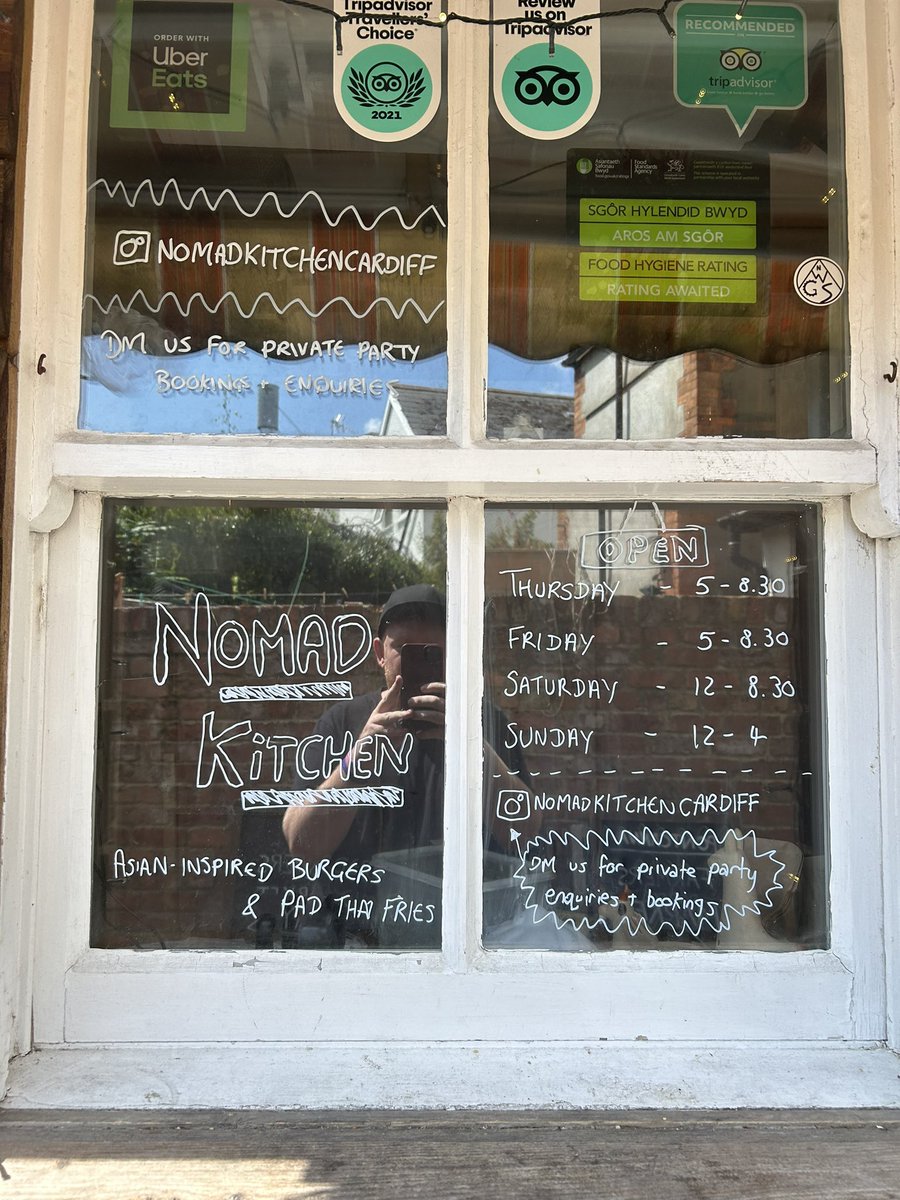 ORDER WITH
Uber
Eats
Tripadvisor
Travellers'
Choice
2021
Review
us on
Tripadvisor
RECOMMENDED
ON
tripadvisor
Asiantaeth
Safonau
Bwyd
Food
Standards
Agency
SGÔR HYLENDID BWYD
AROS AM SGÔR
FOOD HYGIENE RATING
RATING AWAITED
N
W
GS
NOMADKITCHENCARDIFF
DM US FOR PRIVATE PARTY
BOOKINGS + ENQUIRIES
NOMAD
KITCHEN
ASIAN-INSPIRED BURGERS
& PAD THAI FRIES
OPEN
THURSDAY - 5-8.30
FRIDAY - 5-8.30
SATURDAY - 12-8.30
SUNDAY - 12-4
NOMADKITCHENCARDIFF
DM us for private party
enquiries + bookings